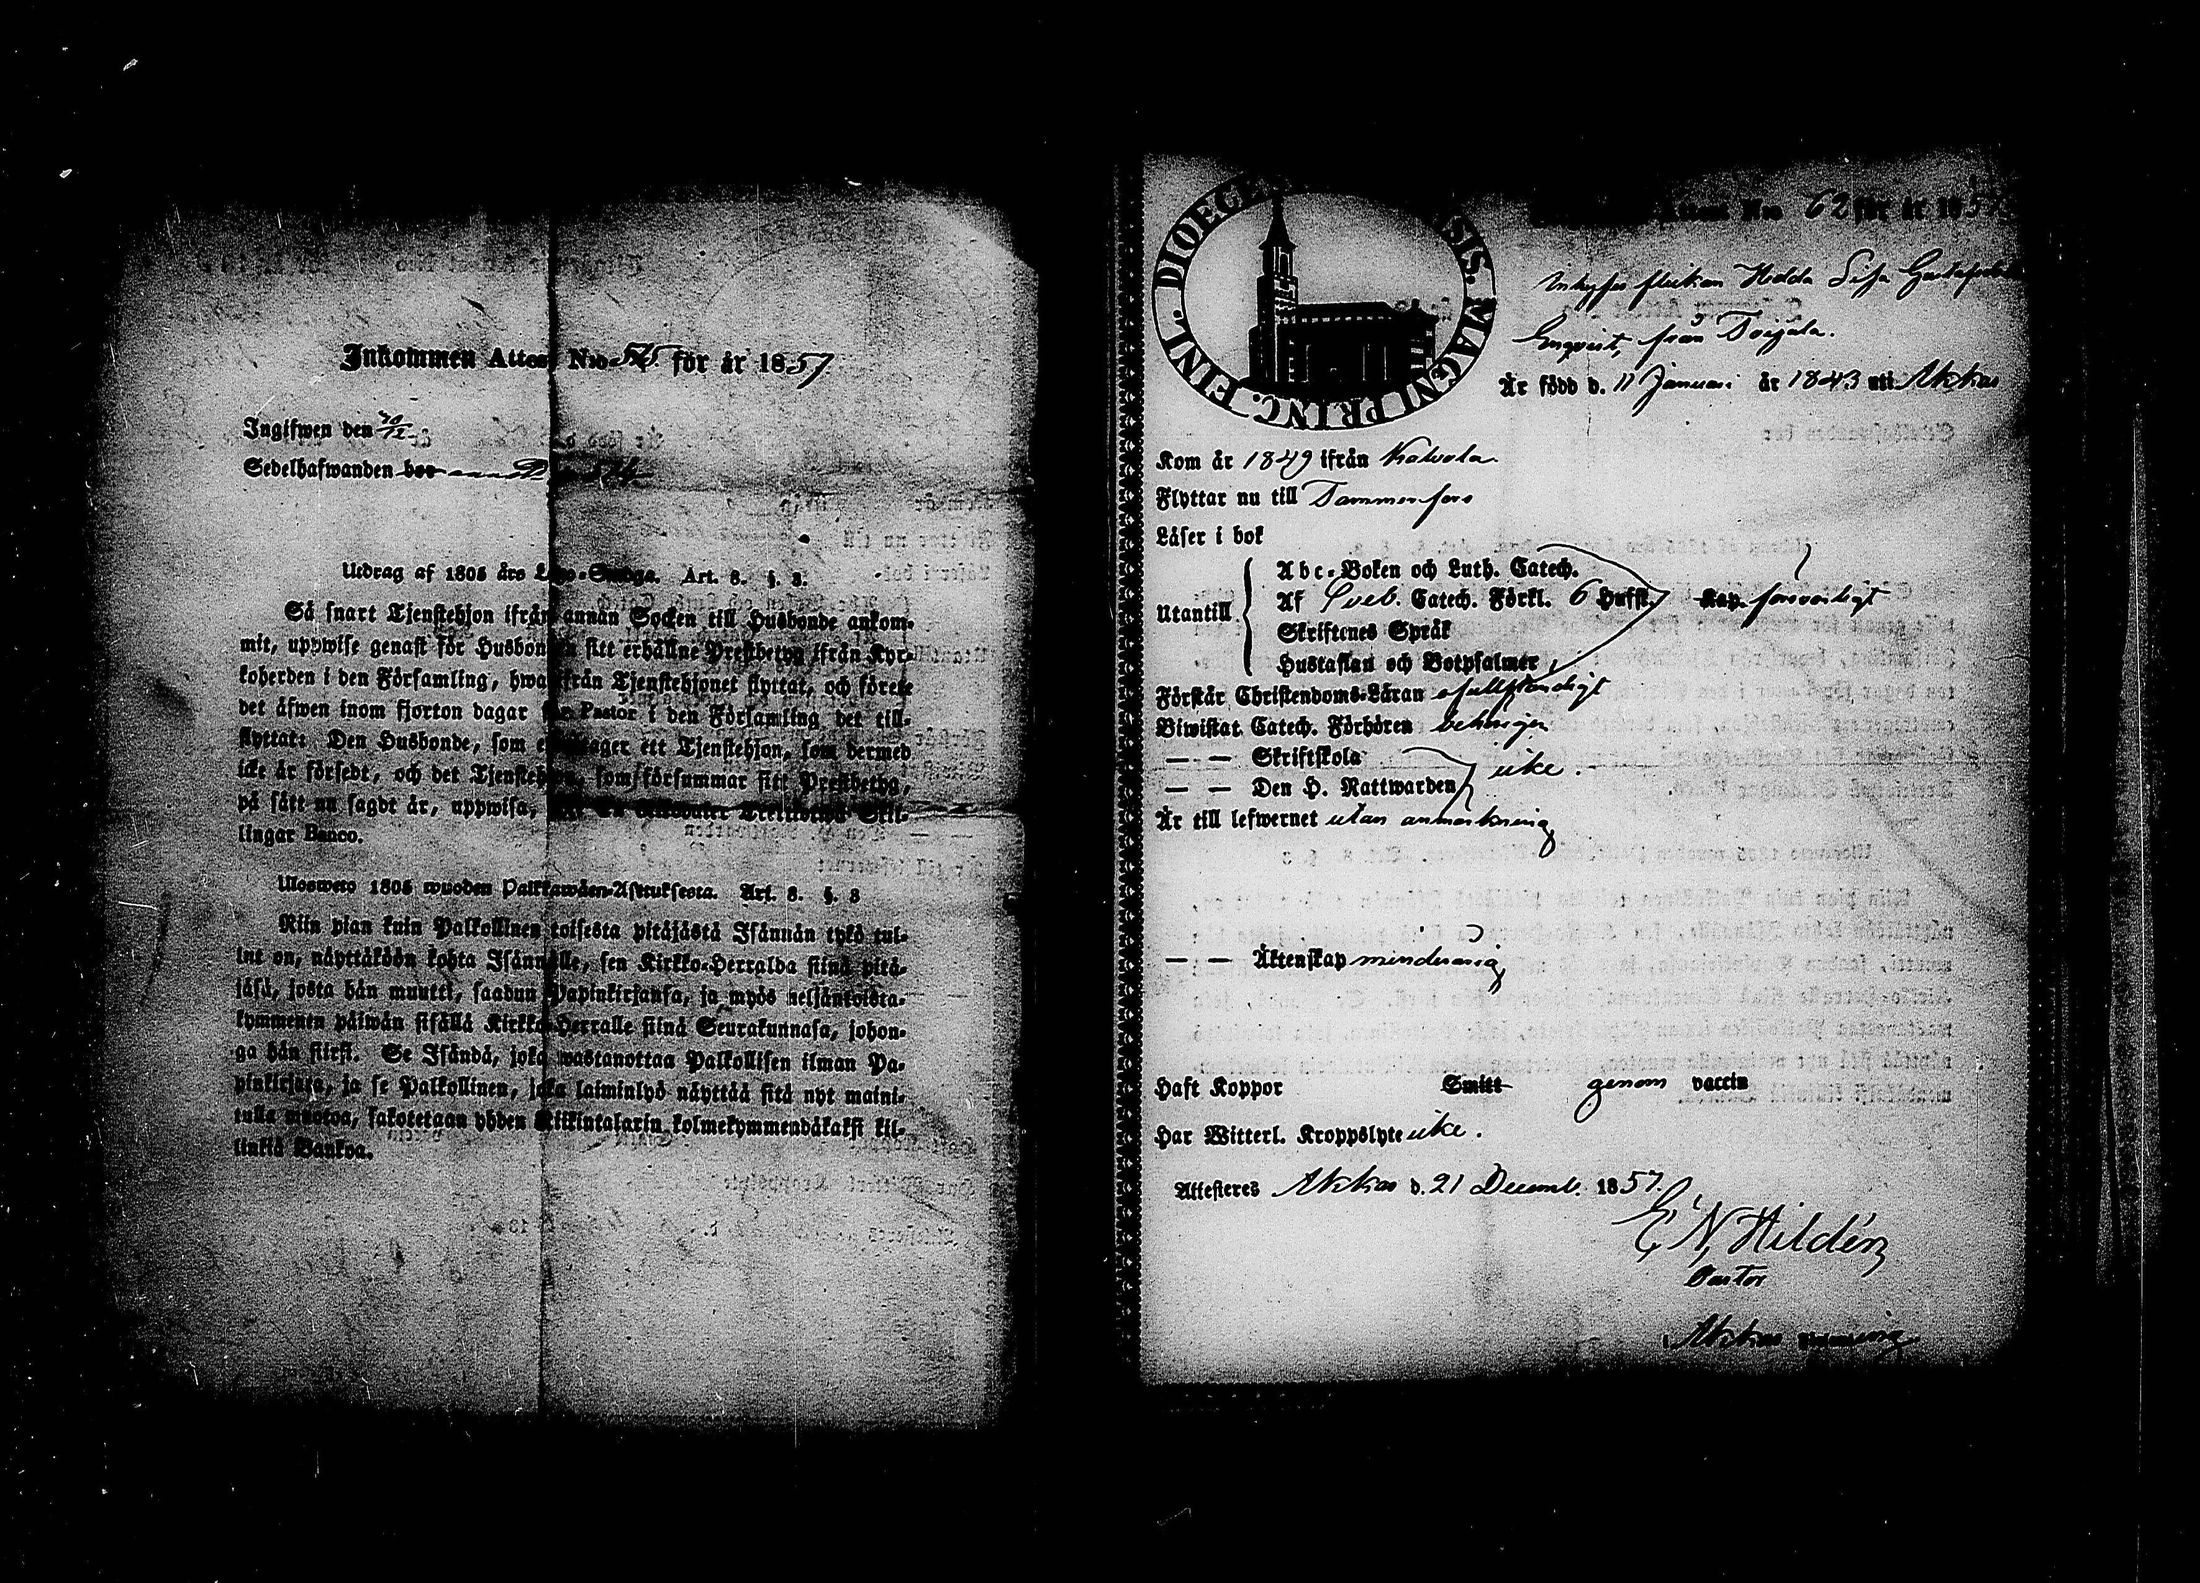 Inkommen Attest N:ro 545. för år 1857
Ingifwen den 30/12
Sedelhafwanden bor
Utdrag af 1805 års Lego-Stadga. Art. 8. §. 8.
Så snart Tjenstehjon ifrån annan Socken till Husbonde ankom-
mit, uppwise genast för Husbonden sitt erhållne Prestbetyg ifrån Kyr-
koherden i den Församling, hwarifrån Tjenstehjonet flyttat, och förete
det äfwen inom fjorton dagar för Pastor i den Församling det till-
flyttat: Den Husbonde, som emottager ett Tjenstehjon, som dermed
icke är försedt, och det Tjenstehjon, som försummar sitt Prestbetyg,
på sätt nu sagdt är, uppwisa, Skil-
lingar Banco.
Uloswetto 1805 wuoden Palkkawäen-Asetuksesta. Art. 8. §. 8
Niin pian kuin Palkollinen toisesta pitäjästä Isännän tykö tul-
lut on, näyttäköön kohta Isännälle, sen Kirkko-Herralda siinä pitä-
jäsä, josta hän muutti, saadun Papinkirjansa, ja myös neljäntoista-
kymmenen päiwän sisällä Kirkko-Herralle siinä Seurakunnasa, johon-
ga hän siirsi. Se Isändä, joka wastanottaa Palkollisen ilman Pa-
pinkirjata, ja se Palkollinen, joka laiminlyö näyttää sitä nyt maini-
tulla muotoa, sakotetaan yhden Riikintalarin kolmekymmendäkaksi kil-
linkiä Bankoa.
DIOECES SIS. MAGNI PRINC. FINL.
Attest N:ro 62 för år 1857
Inhyses flickan Hedda Lisa Gustafsdotter
Enqvist, från Toijala.
Är född d. 11 Januari år 1843 uti Akkas
Kom år 1849 ifrån Kalvola.
Flyttar nu till Tammerfors
Läser i bok
Utantill
Abc-Boken och Luth. Catech.
Af Sveb. Catech. Förkl. 6 Hufst. Kap. försvarligt
Skriftenes Språk
Hustaflan och Botpsalmer
Förstår Christendoms-Läran ofullständigt
Biwistat Catech. Förhören behörigen
— — Skriftskola
— — Den H. Nattwarden icke.
Är till lefwernet utan anmärkning
— — Äktenskap minderårig
Haft Koppor Smitt genom vaccin
Har Witterl. Kroppslyte icke.
Attesteres Akkas d. 21 Decemb. 1857.
E N Hildén
Pastor
Akkas